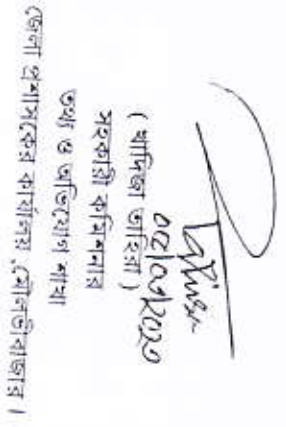 ০৫/০৭/২০২০
( খাদিজা তাহিরা )
সহকারী কমিশনার
তথ্য ও অভিযোগ শাখা
জেলা প্রশাসকের কার্যালয়, মৌলভীবাজার।